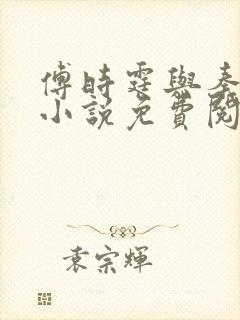 傅時霆與秦
小說免費閱
袁宗輝